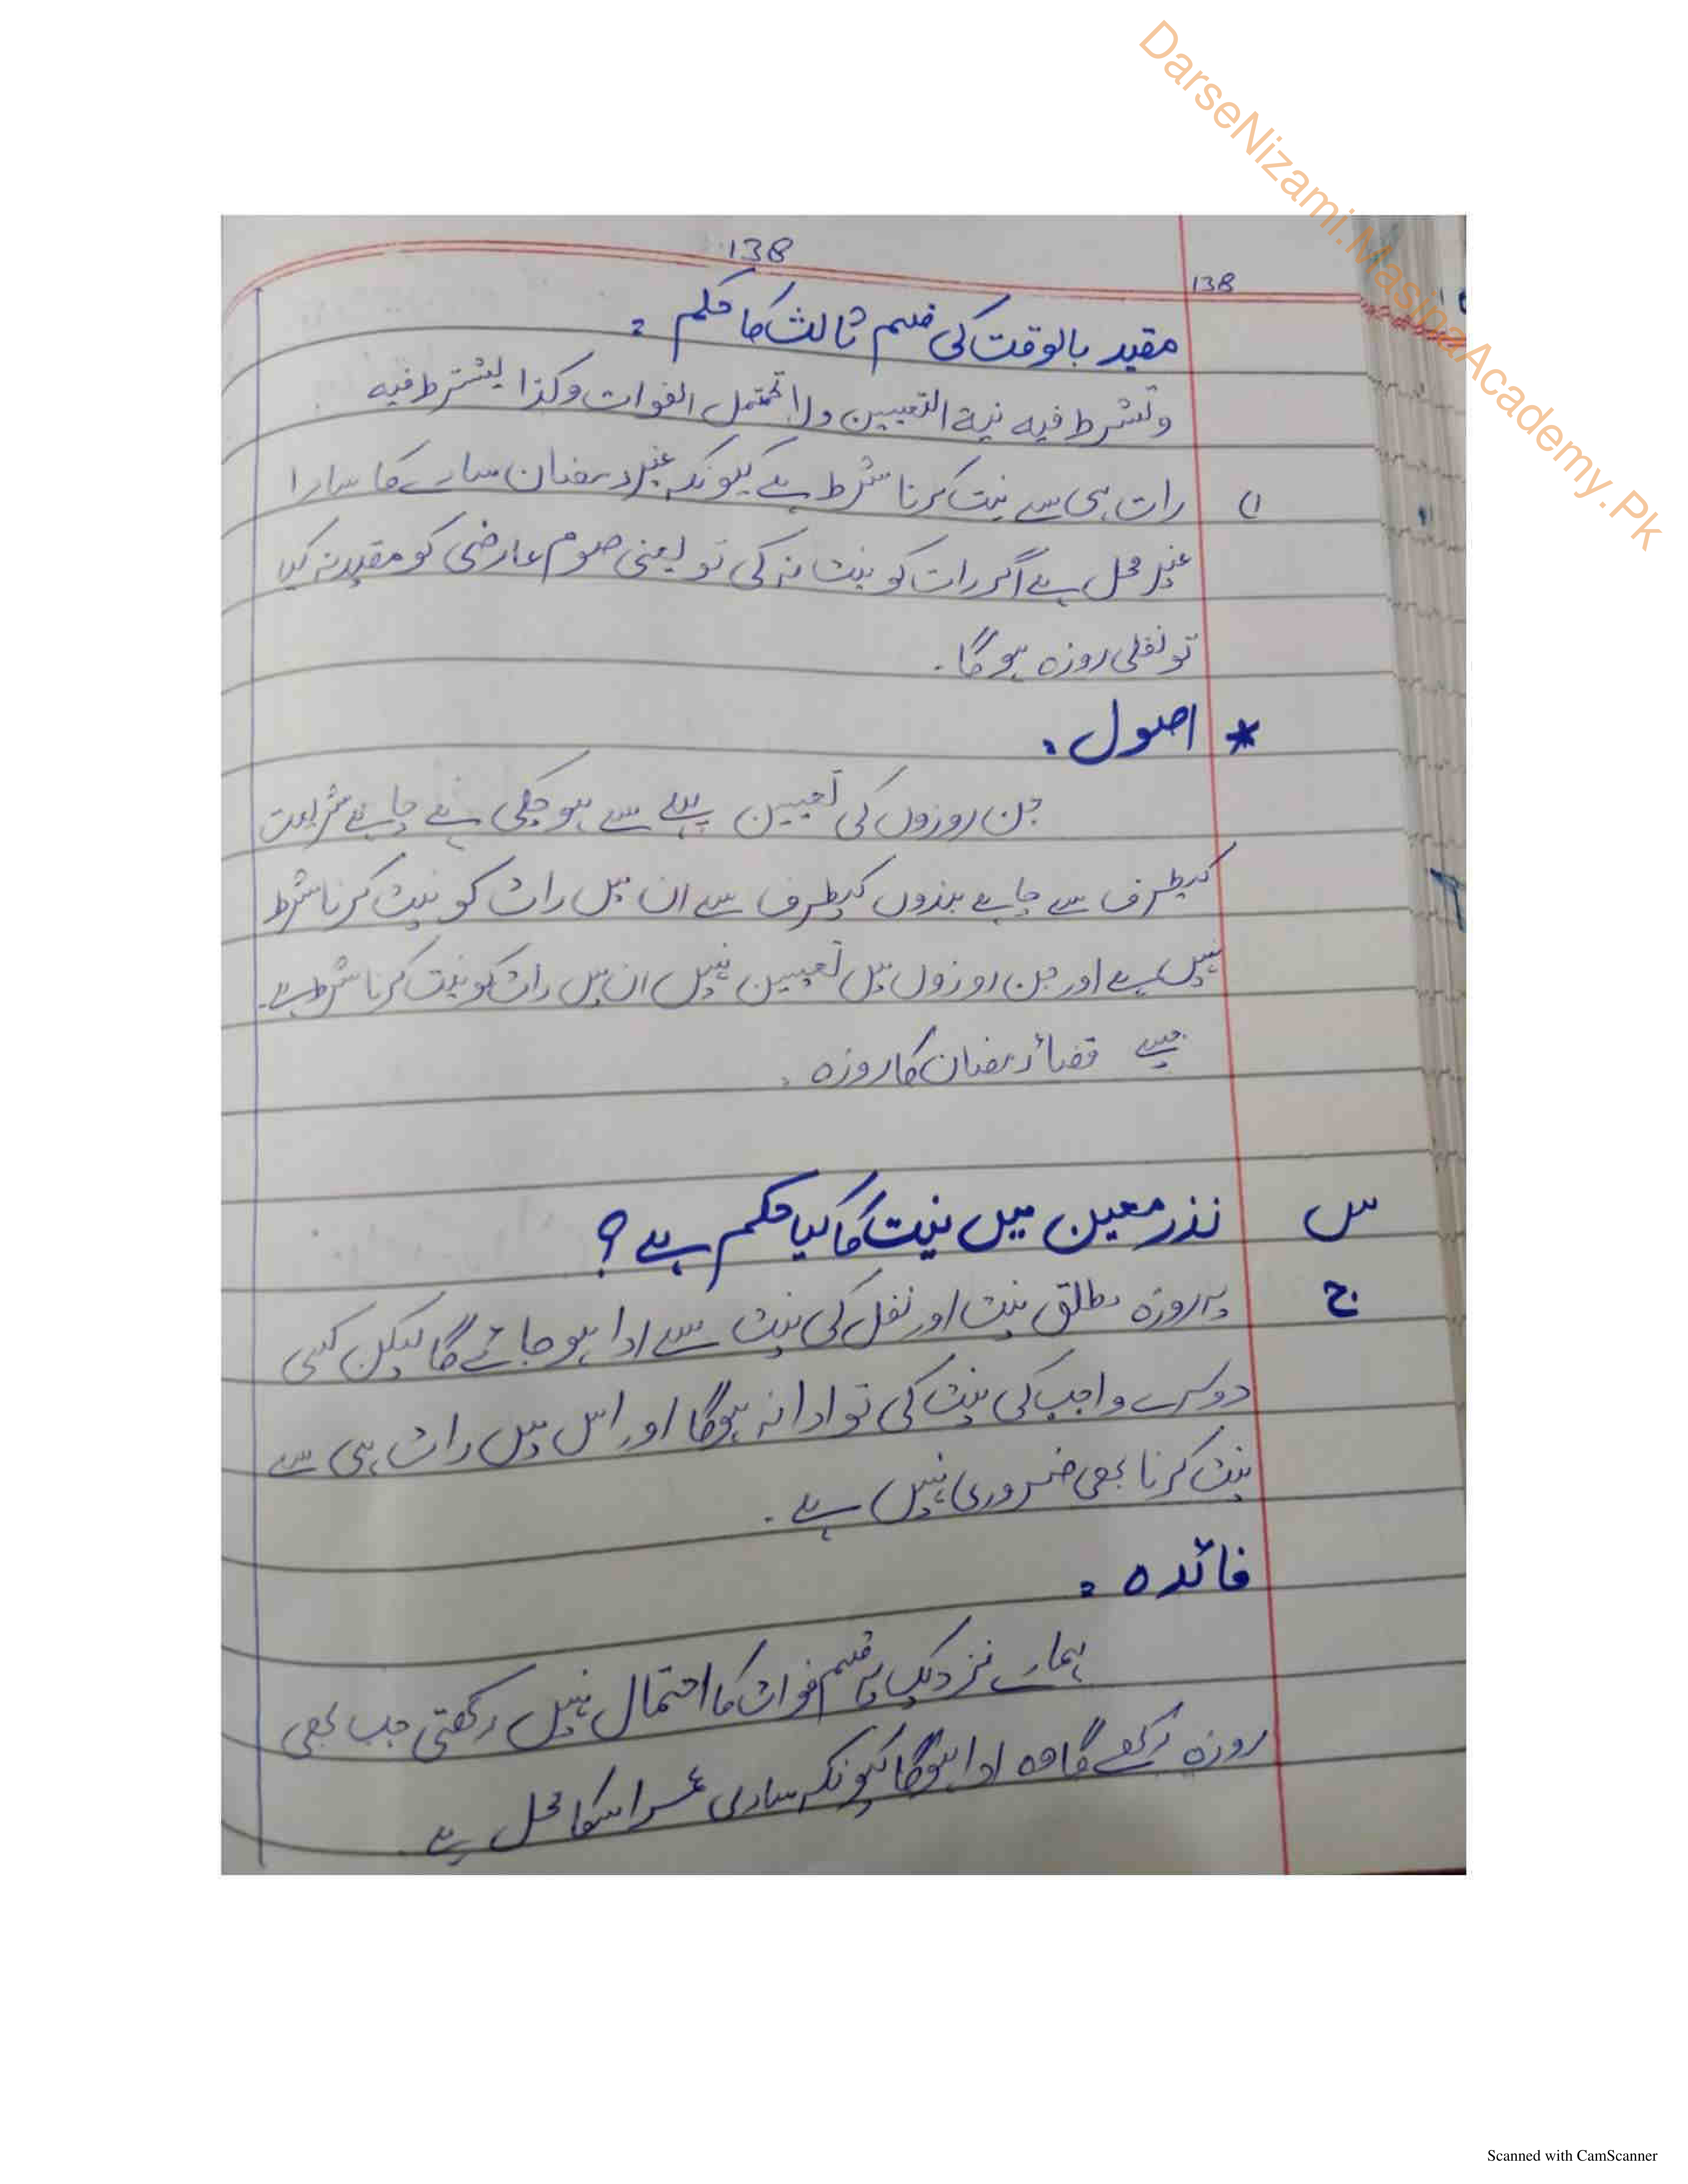 DarseNizami.MasinaAcademy.Pk
138
138
مقید بالوقت کی قسم ثالث کا حکم :
وتشترط فیه نیة التعیین ولا تحتمل الفوات وکذا یشترط فیه
(1 رات ہی سے نیت کرنا شرط ہے کیونکہ غیر رمضان سارے کا سارا
غیر محل ہے اگر رات کو نیت نہ کی تو یعنی صوم عارضی کو مقید نہ کیا
تو نفلی روزہ ہوگا۔
* اصول :
جن روزوں کی تعیین پہلے سے ہو چکی ہے چاہے شریعت
کیطرف سے چاہے بندوں کیطرف سے ان میں رات کو نیت کرنا شرط
نہیں ہے اور جن روزوں میں تعیین نہیں ان میں رات کو نیت کرنا شرط ہے۔
جیسے قضائے رمضان کا روزہ ۔
س نذر معین میں نیت کا کیا حکم ہے ؟
ج یہ روزہ مطلق نیت اور نفل کی نیت سے ادا ہو جائے گا لیکن کسی
دوسرے واجب کی نیت کی تو ادا نہ ہوگا اور اس میں رات ہی سے
نیت کرنا بھی ضروری نہیں ہے ۔
فائدہ :
ہمارے نزدیک یہ قسم فوات کا احتمال نہیں رکھتی جب بھی
روزہ رکھے گا وہ ادا ہوگا کیونکہ ساری عمر اسکا محل ہے
Scanned with CamScanner